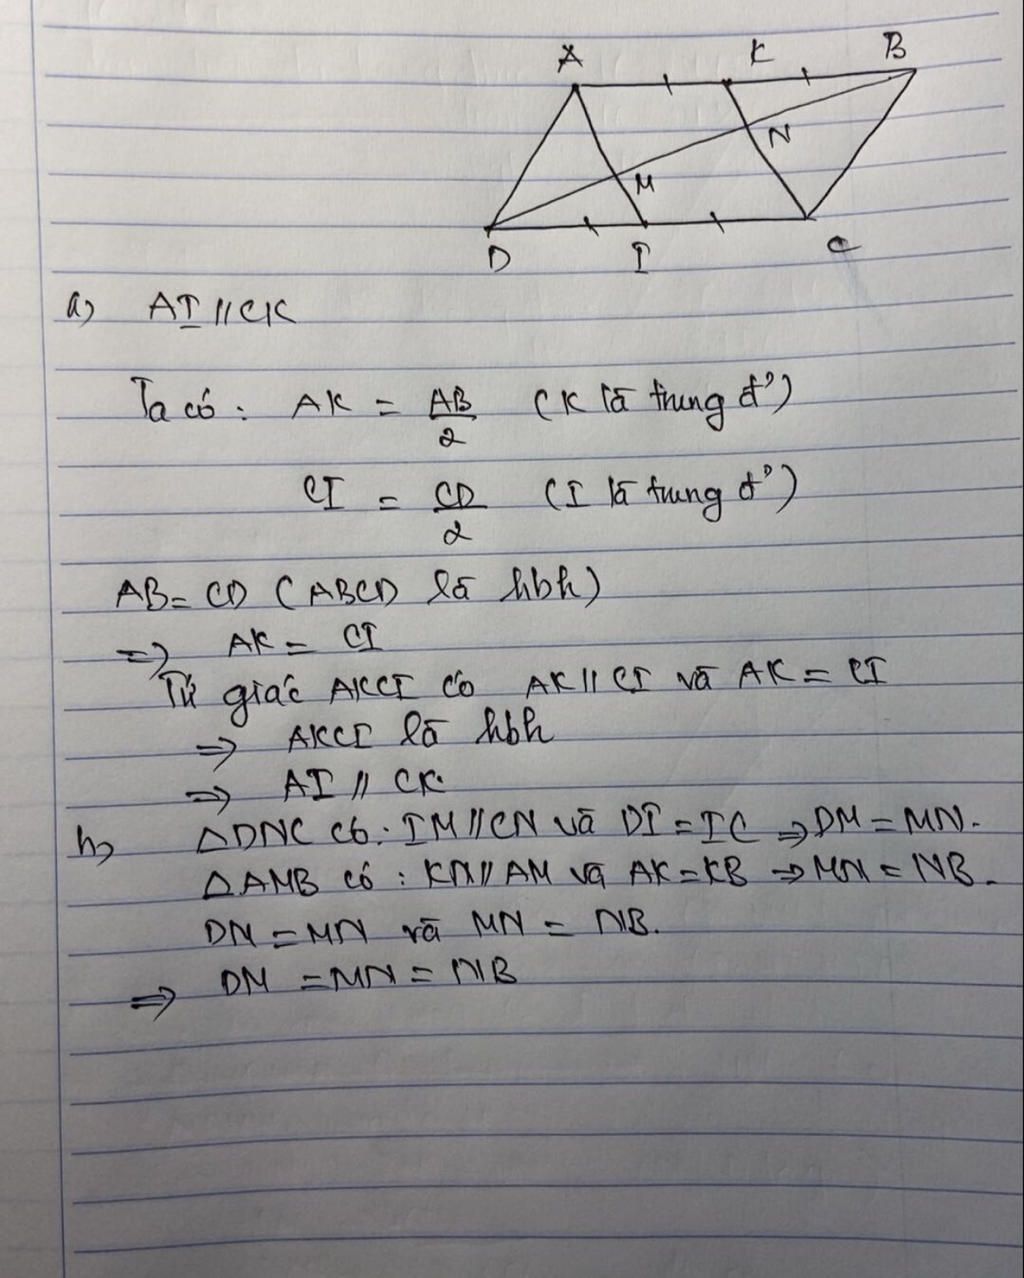 A K B
N
M
D I C
a) AI // CK
Ta có : AK = AB/2 (K là trung đ')
CI = CD/2 (I là trung đ')
AB = CD (ABCD là hbh)
=> AK = CI
Tứ giác AKCI có AK // CI và AK = CI
=> AKCI là hbh
=> AI // CK
b) △DNC có : IM // CN và DI = IC => DM = MN.
△AMB có : KN // AM và AK = KB => MN = NB.
DM = MN và MN = NB.
=> DM = MN = NB